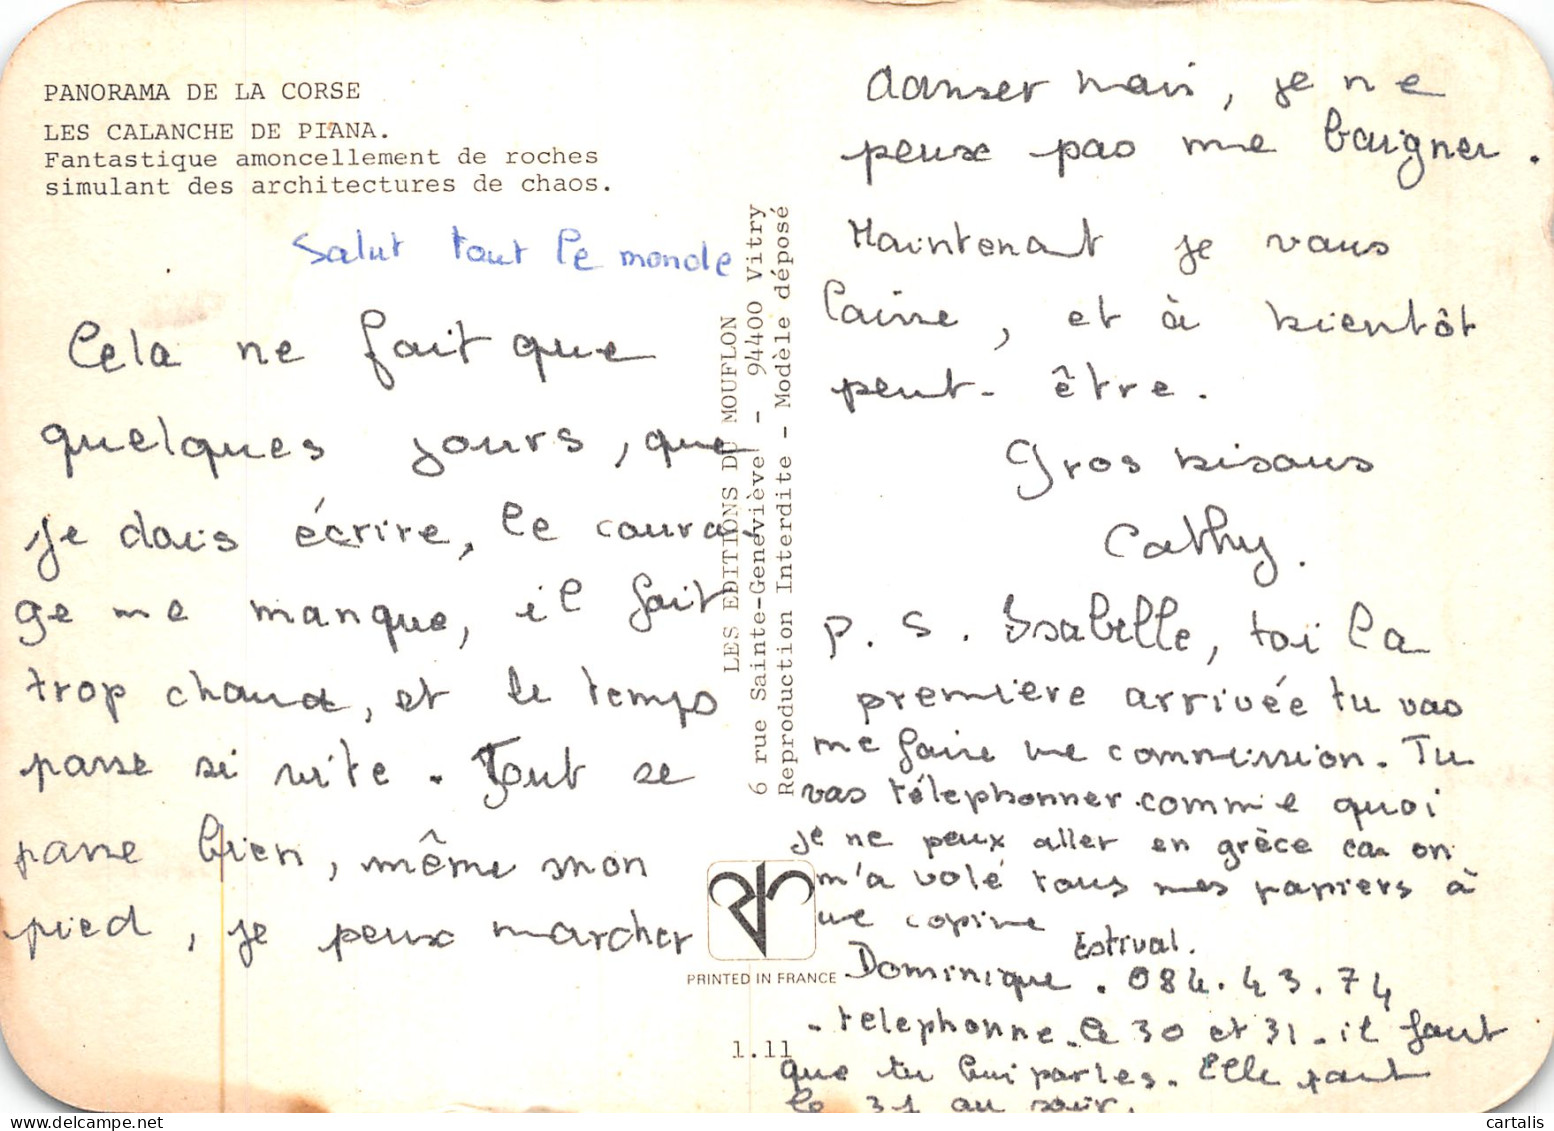 PANORAMA DE LA CORSE
LES CALANCHE DE PIANA.
Fantastique amoncellement de roches
simulant des architectures de chaos.
Salut tout le monde
Cela ne fait que
quelques jours, que
je dois écrire, le coura-
ge me manque, il fait
trop chaud, et le temps
passe si vite. Tout se
passe bien, même mon
pied, je peux marcher
LES EDITIONS DU MOUFLON
6 rue Sainte-Geneviève - 94400 Vitry
Reproduction Interdite - Modèle déposé
PRINTED IN FRANCE
1.11
danser mais, je ne
peux pas me baigner.
Maintenant je vous
laisse, et à bientôt
peut-être.
Gros bisous
Cathy.
P.S. Isabelle, toi la
première arrivée tu vas
me faire une commission. Tu
vas télephonner comme quoi
je ne peux aller en grèce car on
m'a volé tous mes papiers à
une copine
Estival.
Dominique. 084.43.74
- telephonne le 30 et 31 - il faut
que tu lui parles. Elle part
le 31 au soir.
cartalis